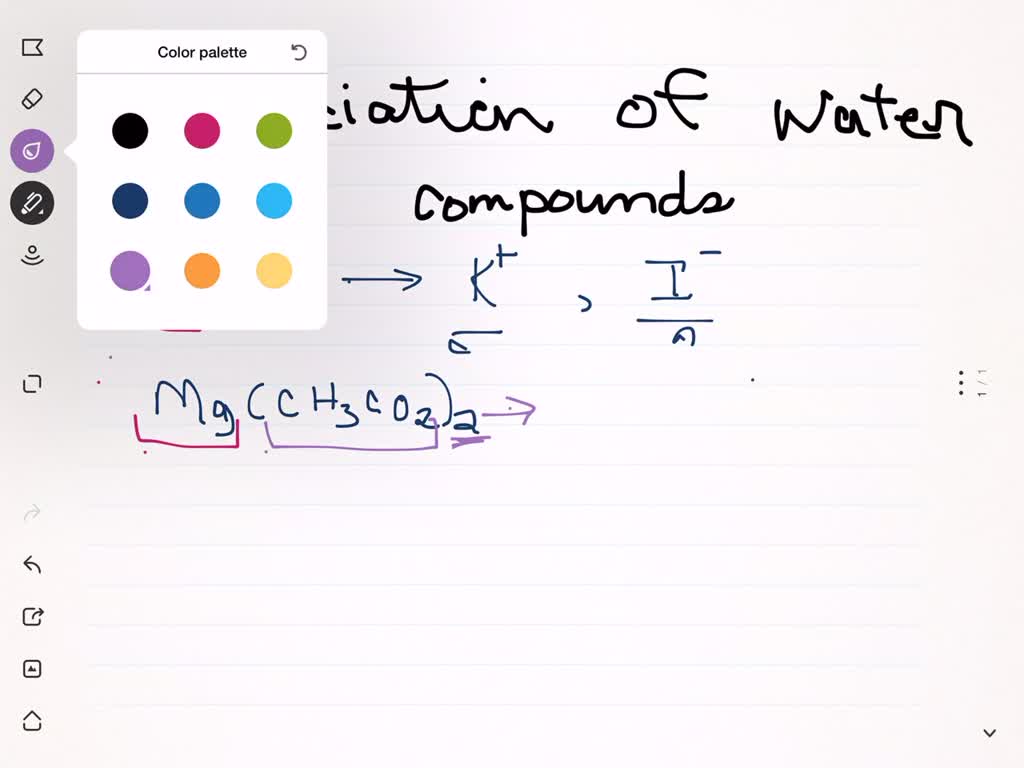 Color palette
ciation of water
compounds
→ K⁺ , I⁻
Mg(CH₃CO₂)₂ →
1 / 1